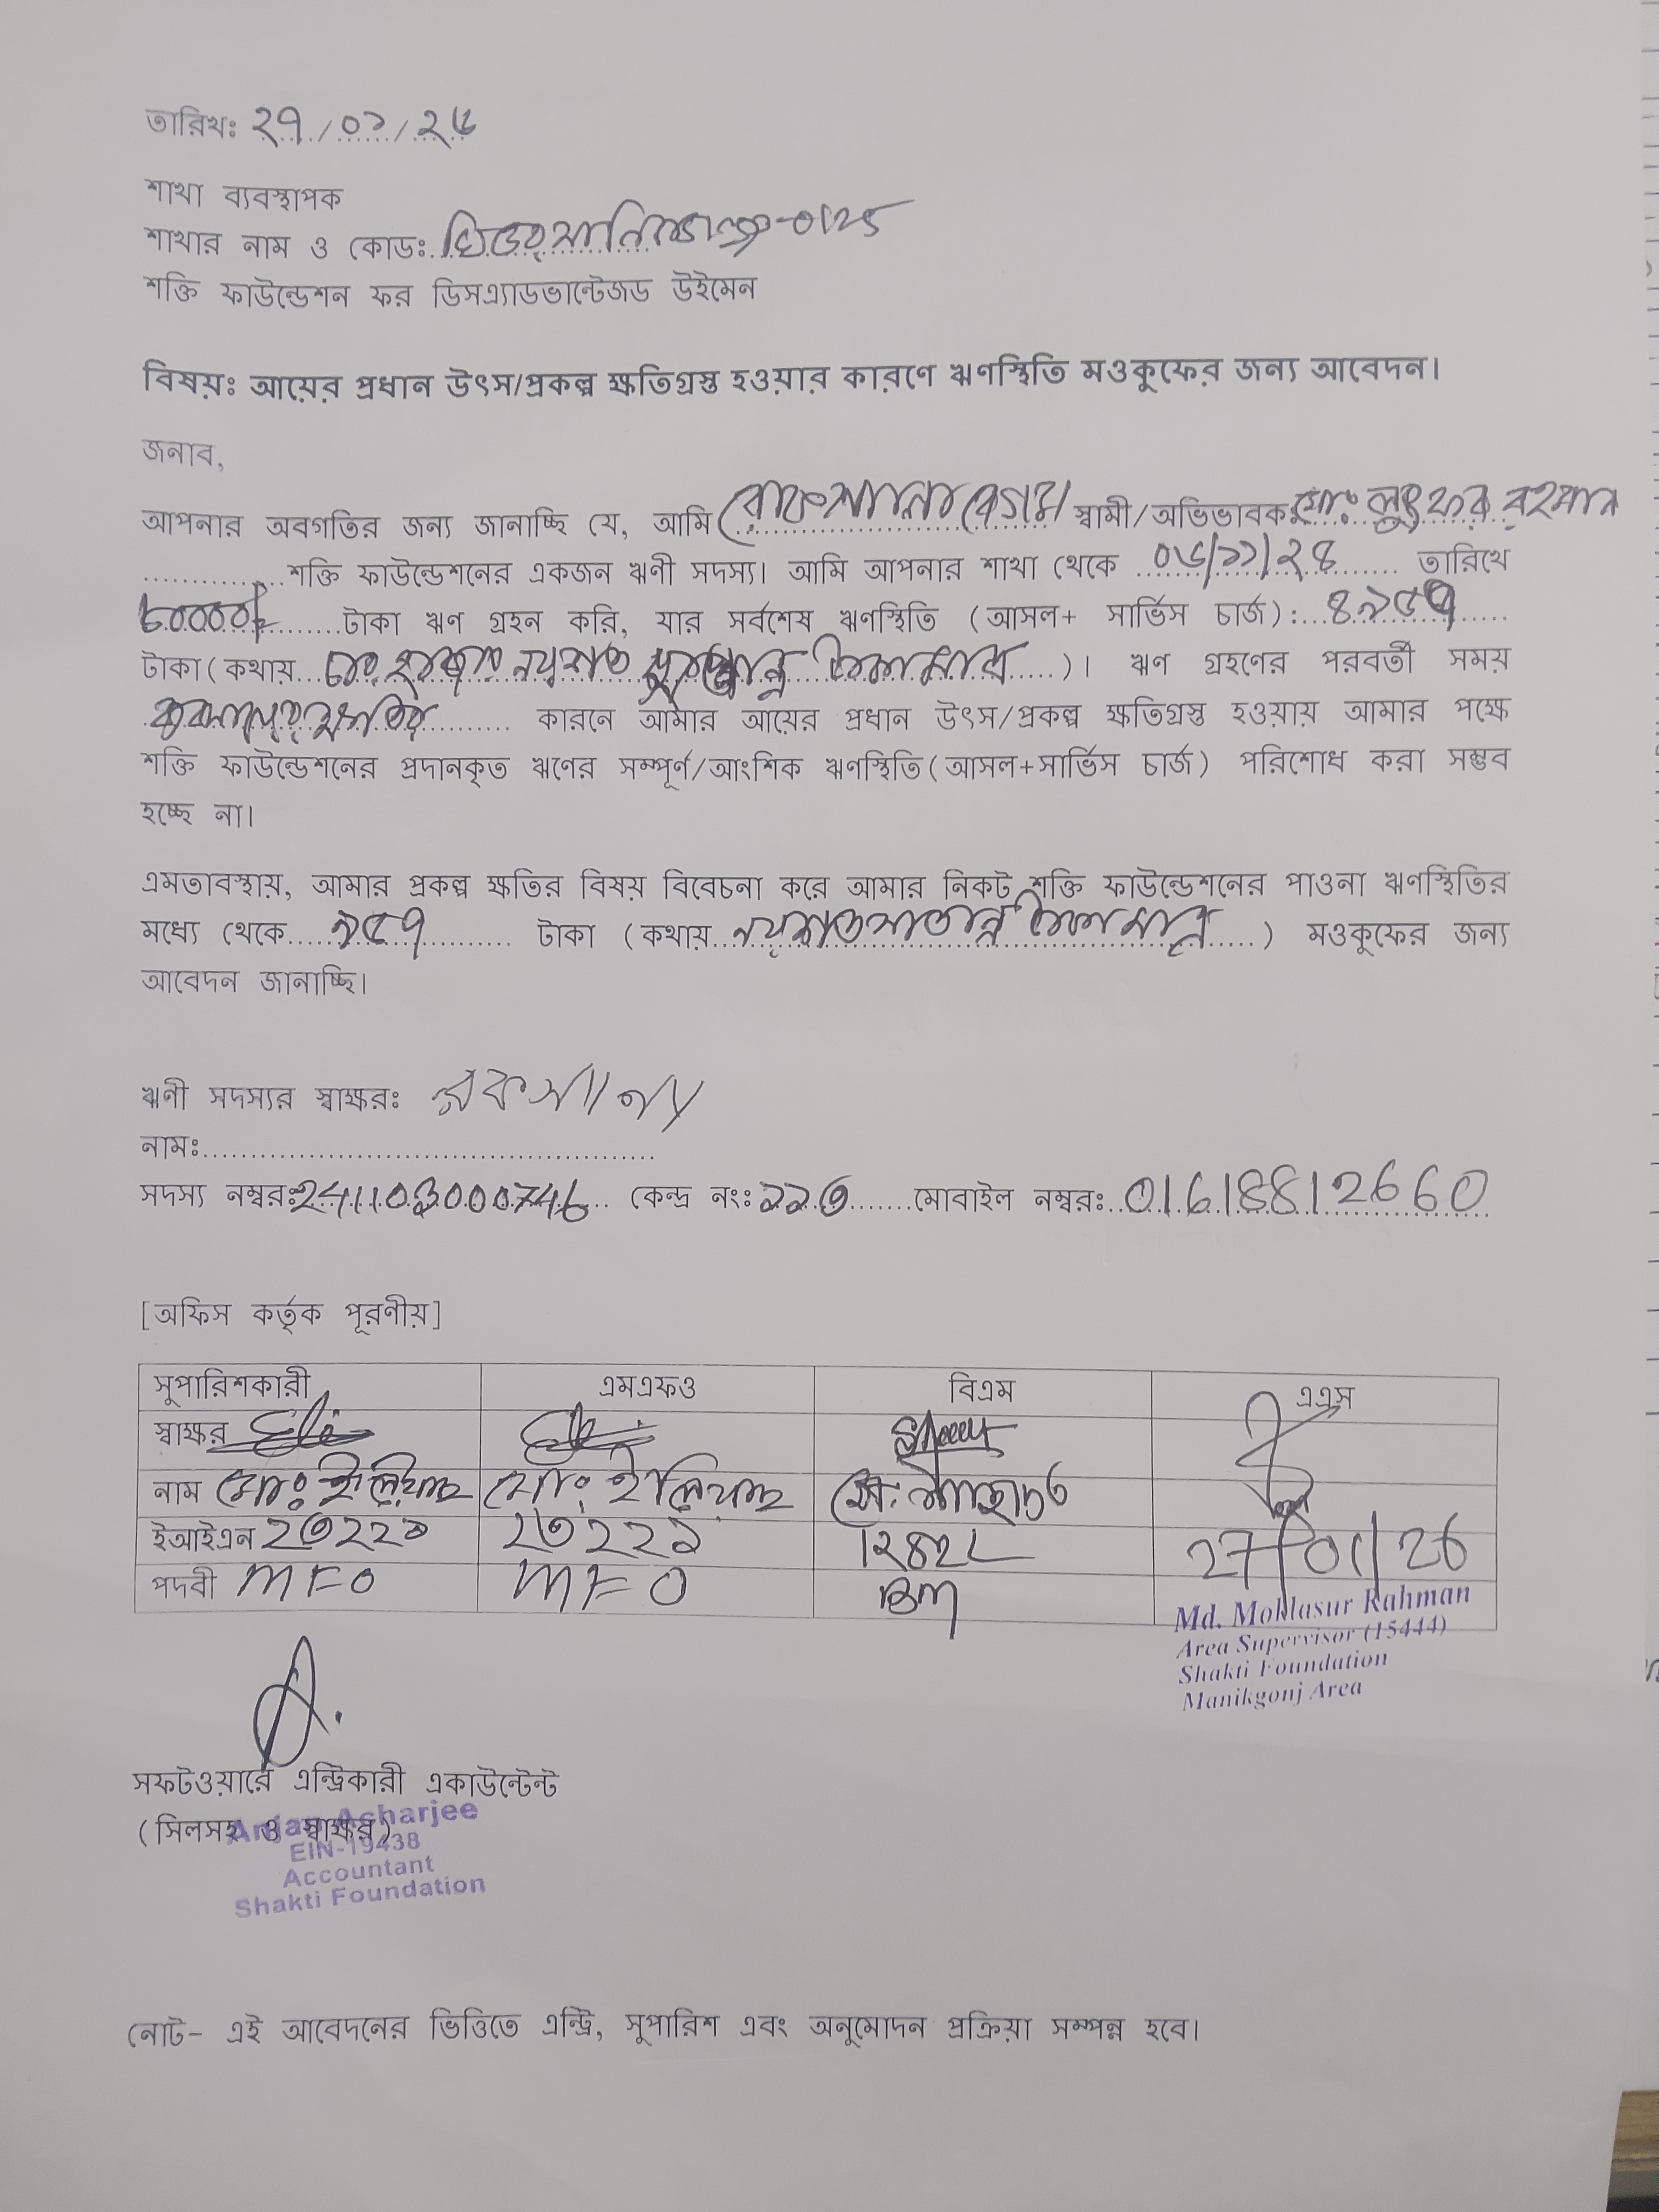 তারিখঃ ২৭/০১/২৬
শাখা ব্যবস্থাপক
শাখার নাম ও কোডঃ ঘিওর, মানিকগঞ্জ-0125
শক্তি ফাউন্ডেশন ফর ডিসএ্যাডভান্টেজড উইমেন
বিষয়ঃ আয়ের প্রধান উৎস/প্রকল্প ক্ষতিগ্রস্ত হওয়ার কারণে ঋণস্থিতি মওকুফের জন্য আবেদন।
জনাব,
আপনার অবগতির জন্য জানাচ্ছি যে, আমি বেগম স্বামী/অভিভাবক মোঃ লুৎফর রহমান
শক্তি ফাউন্ডেশনের একজন ঋণী সদস্য। আমি আপনার শাখা থেকে ০৬/১১/২৪ তারিখে
৮০০০০/= টাকা ঋণ গ্রহন করি, যার সর্বশেষ ঋণস্থিতি (আসল+ সার্ভিস চার্জ): ৪৯৫৭
টাকা(কথায় চার হাজার নয়শত টাকা মাত্র)। ঋণ গ্রহণের পরবর্তী সময়
কারনে আমার আয়ের প্রধান উৎস/প্রকল্প ক্ষতিগ্রস্ত হওয়ায় আমার পক্ষে
শক্তি ফাউন্ডেশনের প্রদানকৃত ঋণের সম্পূর্ণ/আংশিক ঋণস্থিতি(আসল+সার্ভিস চার্জ) পরিশোধ করা সম্ভব
হচ্ছে না।
এমতাবস্থায়, আমার প্রকল্প ক্ষতির বিষয় বিবেচনা করে আমার নিকট শক্তি ফাউন্ডেশনের পাওনা ঋণস্থিতির
মধ্যে থেকে ৯৫৭ টাকা (কথায় নয়শত সাতান্ন টাকা মাত্র) মওকুফের জন্য
আবেদন জানাচ্ছি।
ঋণী সদস্যর স্বাক্ষরঃ রকসানা
নামঃ
সদস্য নম্বরঃ 241103000746 কেন্দ্র নংঃ ২২৩ মোবাইল নম্বরঃ 01618812660
[অফিস কর্তৃক পূরণীয়]
সুপারিশকারী এমএফও বিএম এএস
স্বাক্ষর
নাম মোঃ ইলিয়াছ মোঃ ইলিয়াছ
ইআইএন ২৩২২৯ ২৩২২৯ 27/01/26
পদবী MFO MFO BM
Md. Moklasur Rahman
Area Supervisor (15444)
Shakti Foundation
Manikgonj Area
সফটওয়ারে এন্ট্রিকারী একাউন্টেন্ট
(সিলসহ ও স্বাক্ষর)
Acharjee
EIN-19438
Accountant
Shakti Foundation
নোট- এই আবেদনের ভিত্তিতে এন্ট্রি, সুপারিশ এবং অনুমোদন প্রক্রিয়া সম্পন্ন হবে।